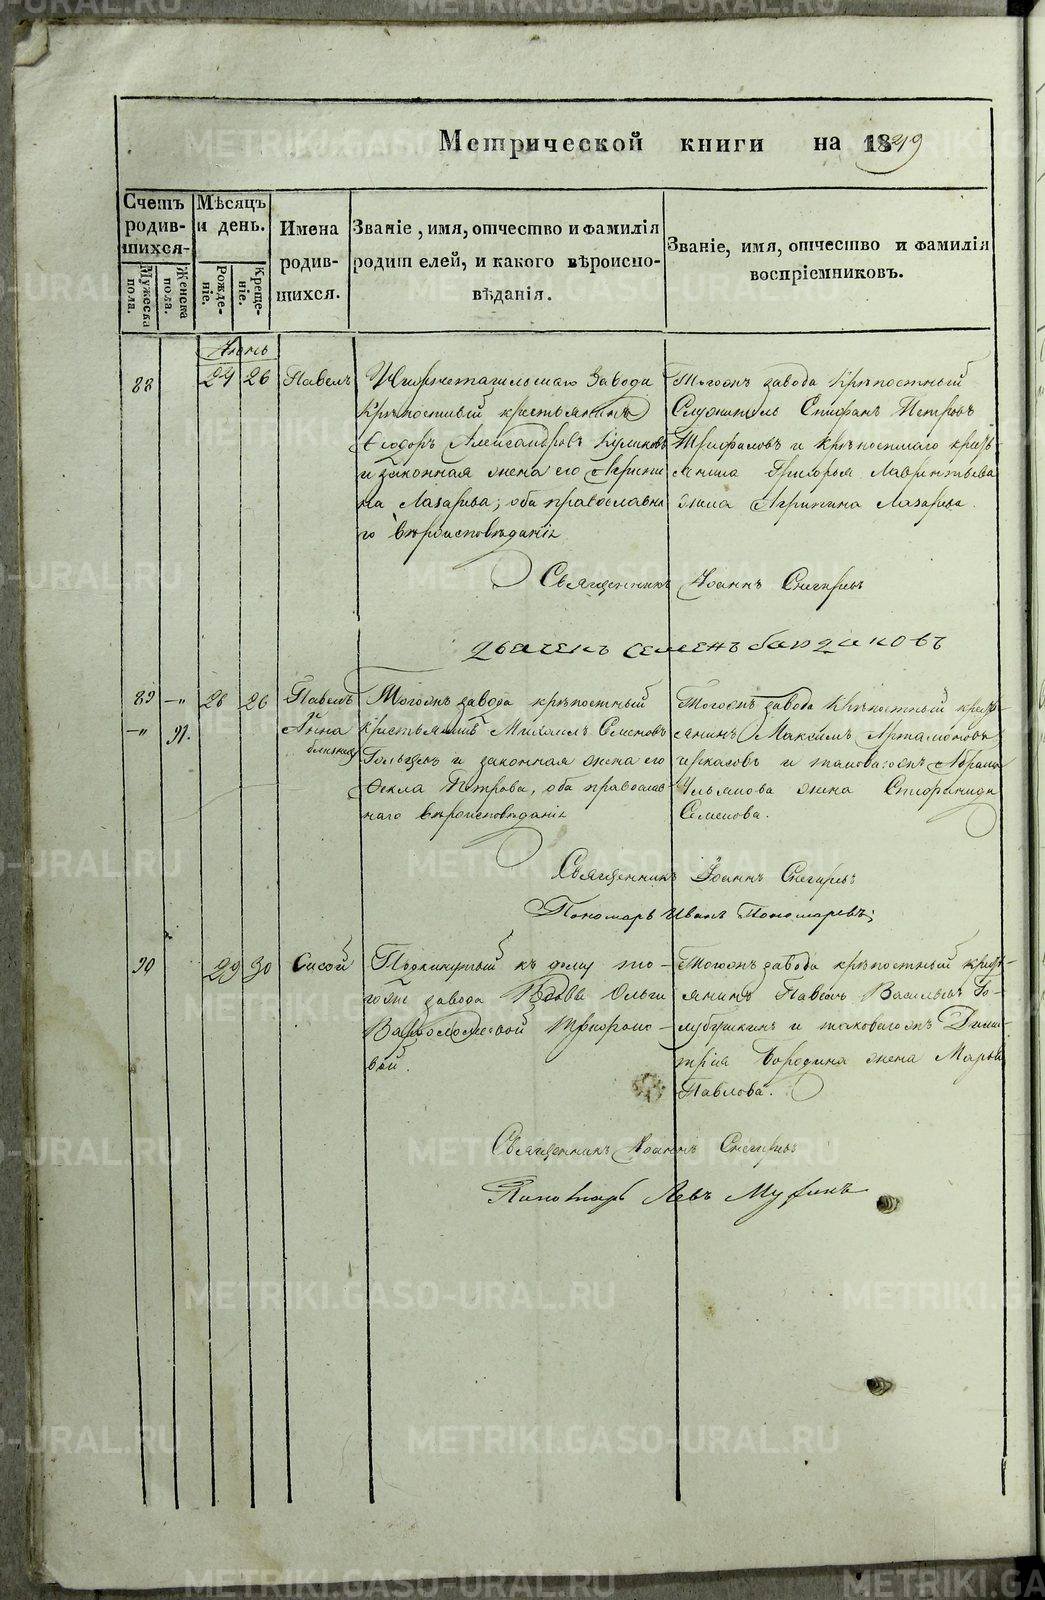 Метрической книги на 1849
Счетъ родив-шихся.
Мужеска пола.
Женска пола.
Мѣсяцъ и день.
Рожде-ніе.
Креще-ніе.
Имена родив-шихся.
Званіе, имя, отчество и фамилія
родителей, и какого вѣроиспо-
вѣданія.
Званіе, имя, отчество и фамилія
воспріемниковъ.
Іюнь
88 24 26 Павелъ
Нижнетагильскаго завода
крѣпостный крестьянинъ
Ѳеодоръ Александровъ Куликовъ
и законная жена его Агрипи
на Лазарева; оба православна
го вѣроисповѣданія
Тогожъ завода крѣпостный
Служитель Стефанъ Петровъ
и крѣпостнаго кресть
янина Григорья Лаврентьева
жена Агрипина Лазарева.
Священникъ Іоаннъ Снегиревъ
дьячекъ семенъ
89 —" 26 26 Павелъ
—" 91. Анна
близнецы
Тогожъ завода крѣпостный
крестьянинъ Михаилъ Семеновъ
и законная жена его
Ѳекла Петрова, оба православ
наго вѣроисповѣданія
Тогожъ завода крѣпостный кресть
янинъ Максимъ Артамоновъ
и таковагожъ Абрама
Ульянова жена Спиридида
Семенова.
Священникъ Іоаннъ Снегиревъ
Пономарь Иванъ Пономаревъ;
90 29 30 Сисой
Подкинутый къ дому то-
гоже завода Вдовы Ольги
Варфоломеевой
вой.
Тогожъ завода крѣпостный кресть-
янинъ Павелъ Васильевъ Го-
лубушкинъ и таковагожъ Дими-
трія Бородина жена Марья
Павлова.
Священникъ Іоаннъ Снегиревъ
Пономарь Левъ
METRIKI.GASO-URAL.RU